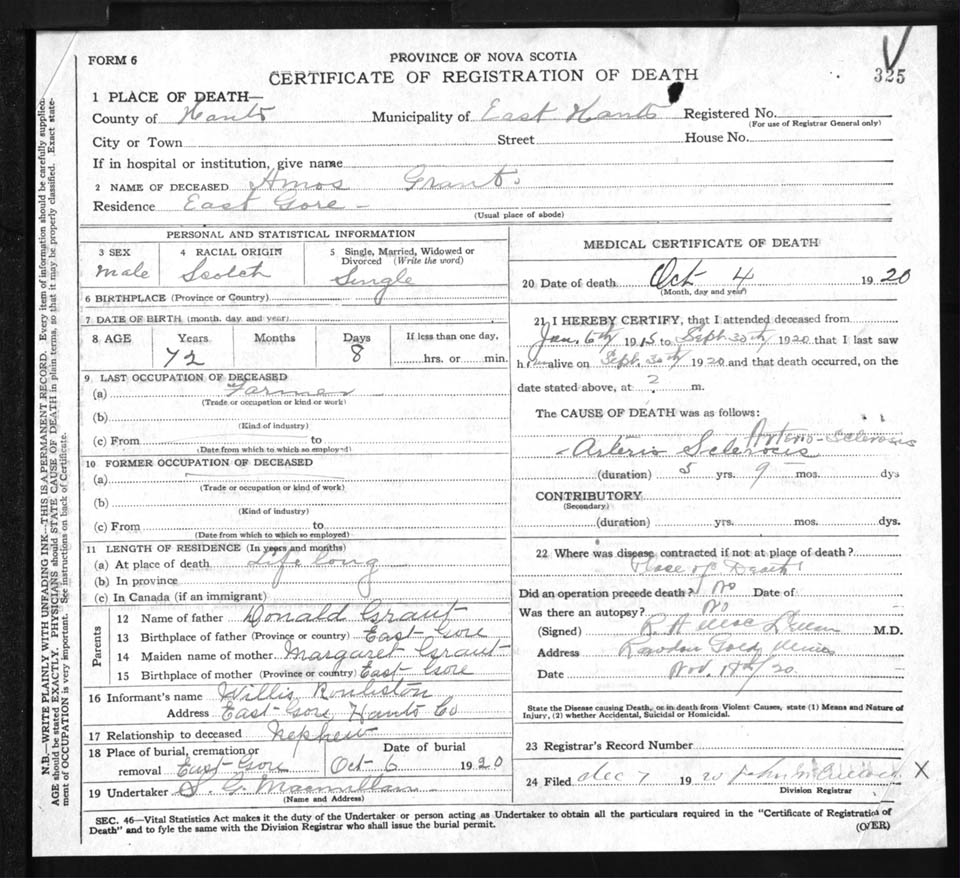 FORM 6
PROVINCE OF NOVA SCOTIA
CERTIFICATE OF REGISTRATION OF DEATH
325
1 PLACE OF DEATH—
County of Hants Municipality of East Hants Registered No.
(For use of Registrar General only)
City or Town Street House No.
If in hospital or institution, give name
2 NAME OF DECEASED Amos Grant
Residence East Gore -
(Usual place of abode)
PERSONAL AND STATISTICAL INFORMATION
3 SEX 4 RACIAL ORIGIN 5 Single, Married, Widowed or Divorced (Write the word)
Male Scotch Single
6 BIRTHPLACE (Province or Country)
7 DATE OF BIRTH (month, day and year)
8 AGE Years Months Days If less than one day,
72 8 hrs. or min.
9 LAST OCCUPATION OF DECEASED
(a) Farmer
(Trade or occupation or kind or work)
(b)
(Kind of industry)
(c) From to
(Date from which to which so employed)
10 FORMER OCCUPATION OF DECEASED
(a)
(Trade or occupation or kind of work)
(b)
(Kind of industry)
(c) From to
(Date from which to which so employed)
11 LENGTH OF RESIDENCE (In years and months)
(a) At place of death Life long
(b) In province
(c) In Canada (if an immigrant)
Parents
12 Name of father Donald Grant
13 Birthplace of father (Province or country) East Gore
14 Maiden name of mother Margaret Grant
15 Birthplace of mother (Province or country) East Gore
16 Informant's name Willis
Address East Gore, Hants Co
17 Relationship to deceased Nephew
18 Place of burial, cremation or removal East Gore Date of burial Oct 6 1920
19 Undertaker S. G. Macmillan
(Name and Address)
MEDICAL CERTIFICATE OF DEATH
20 Date of death Oct 4 1920
(Month, day and year)
21 I HEREBY CERTIFY, that I attended deceased from
Jan 6th 1915 to Sept 30th 1920 that I last saw
him alive on Sept. 30th 1920 and that death occurred, on the
date stated above, at ? m.
The CAUSE OF DEATH was as follows:
Arterio-Sclerosis
- Arterio Sclerosis
(duration) 5 yrs. 9 mos. dys
CONTRIBUTORY
(Secondary)
(duration) yrs. mos. dys.
22 Where was disease contracted if not at place of death?
Place of Death
Did an operation precede death? No Date of
Was there an autopsy? No
(Signed) R. H M.D.
Address Rawdon Gold Mines
Date Nov. 18th/20
State the Disease causing Death, or in death from Violent Causes, state (1) Means and Nature of
Injury, (2) whether Accidental, Suicidal or Homicidal.
23 Registrar's Record Number
24 Filed Dec 7 1920 John X
Division Registrar
SEC. 46—Vital Statistics Act makes it the duty of the Undertaker or person acting as Undertaker to obtain all the particulars required in the "Certificate of Registration of
Death" and to fyle the same with the Division Registrar who shall issue the burial permit.
(OVER)
N.B.—WRITE PLAINLY WITH UNFADING INK—THIS IS A PERMANENT RECORD. Every item of information should be carefully supplied.
AGE should be stated EXACTLY. PHYSICIANS should STATE CAUSE OF DEATH in plain terms, so that it may be properly classified. Exact state-
ment of OCCUPATION is very important. See instructions on back of Certificate.